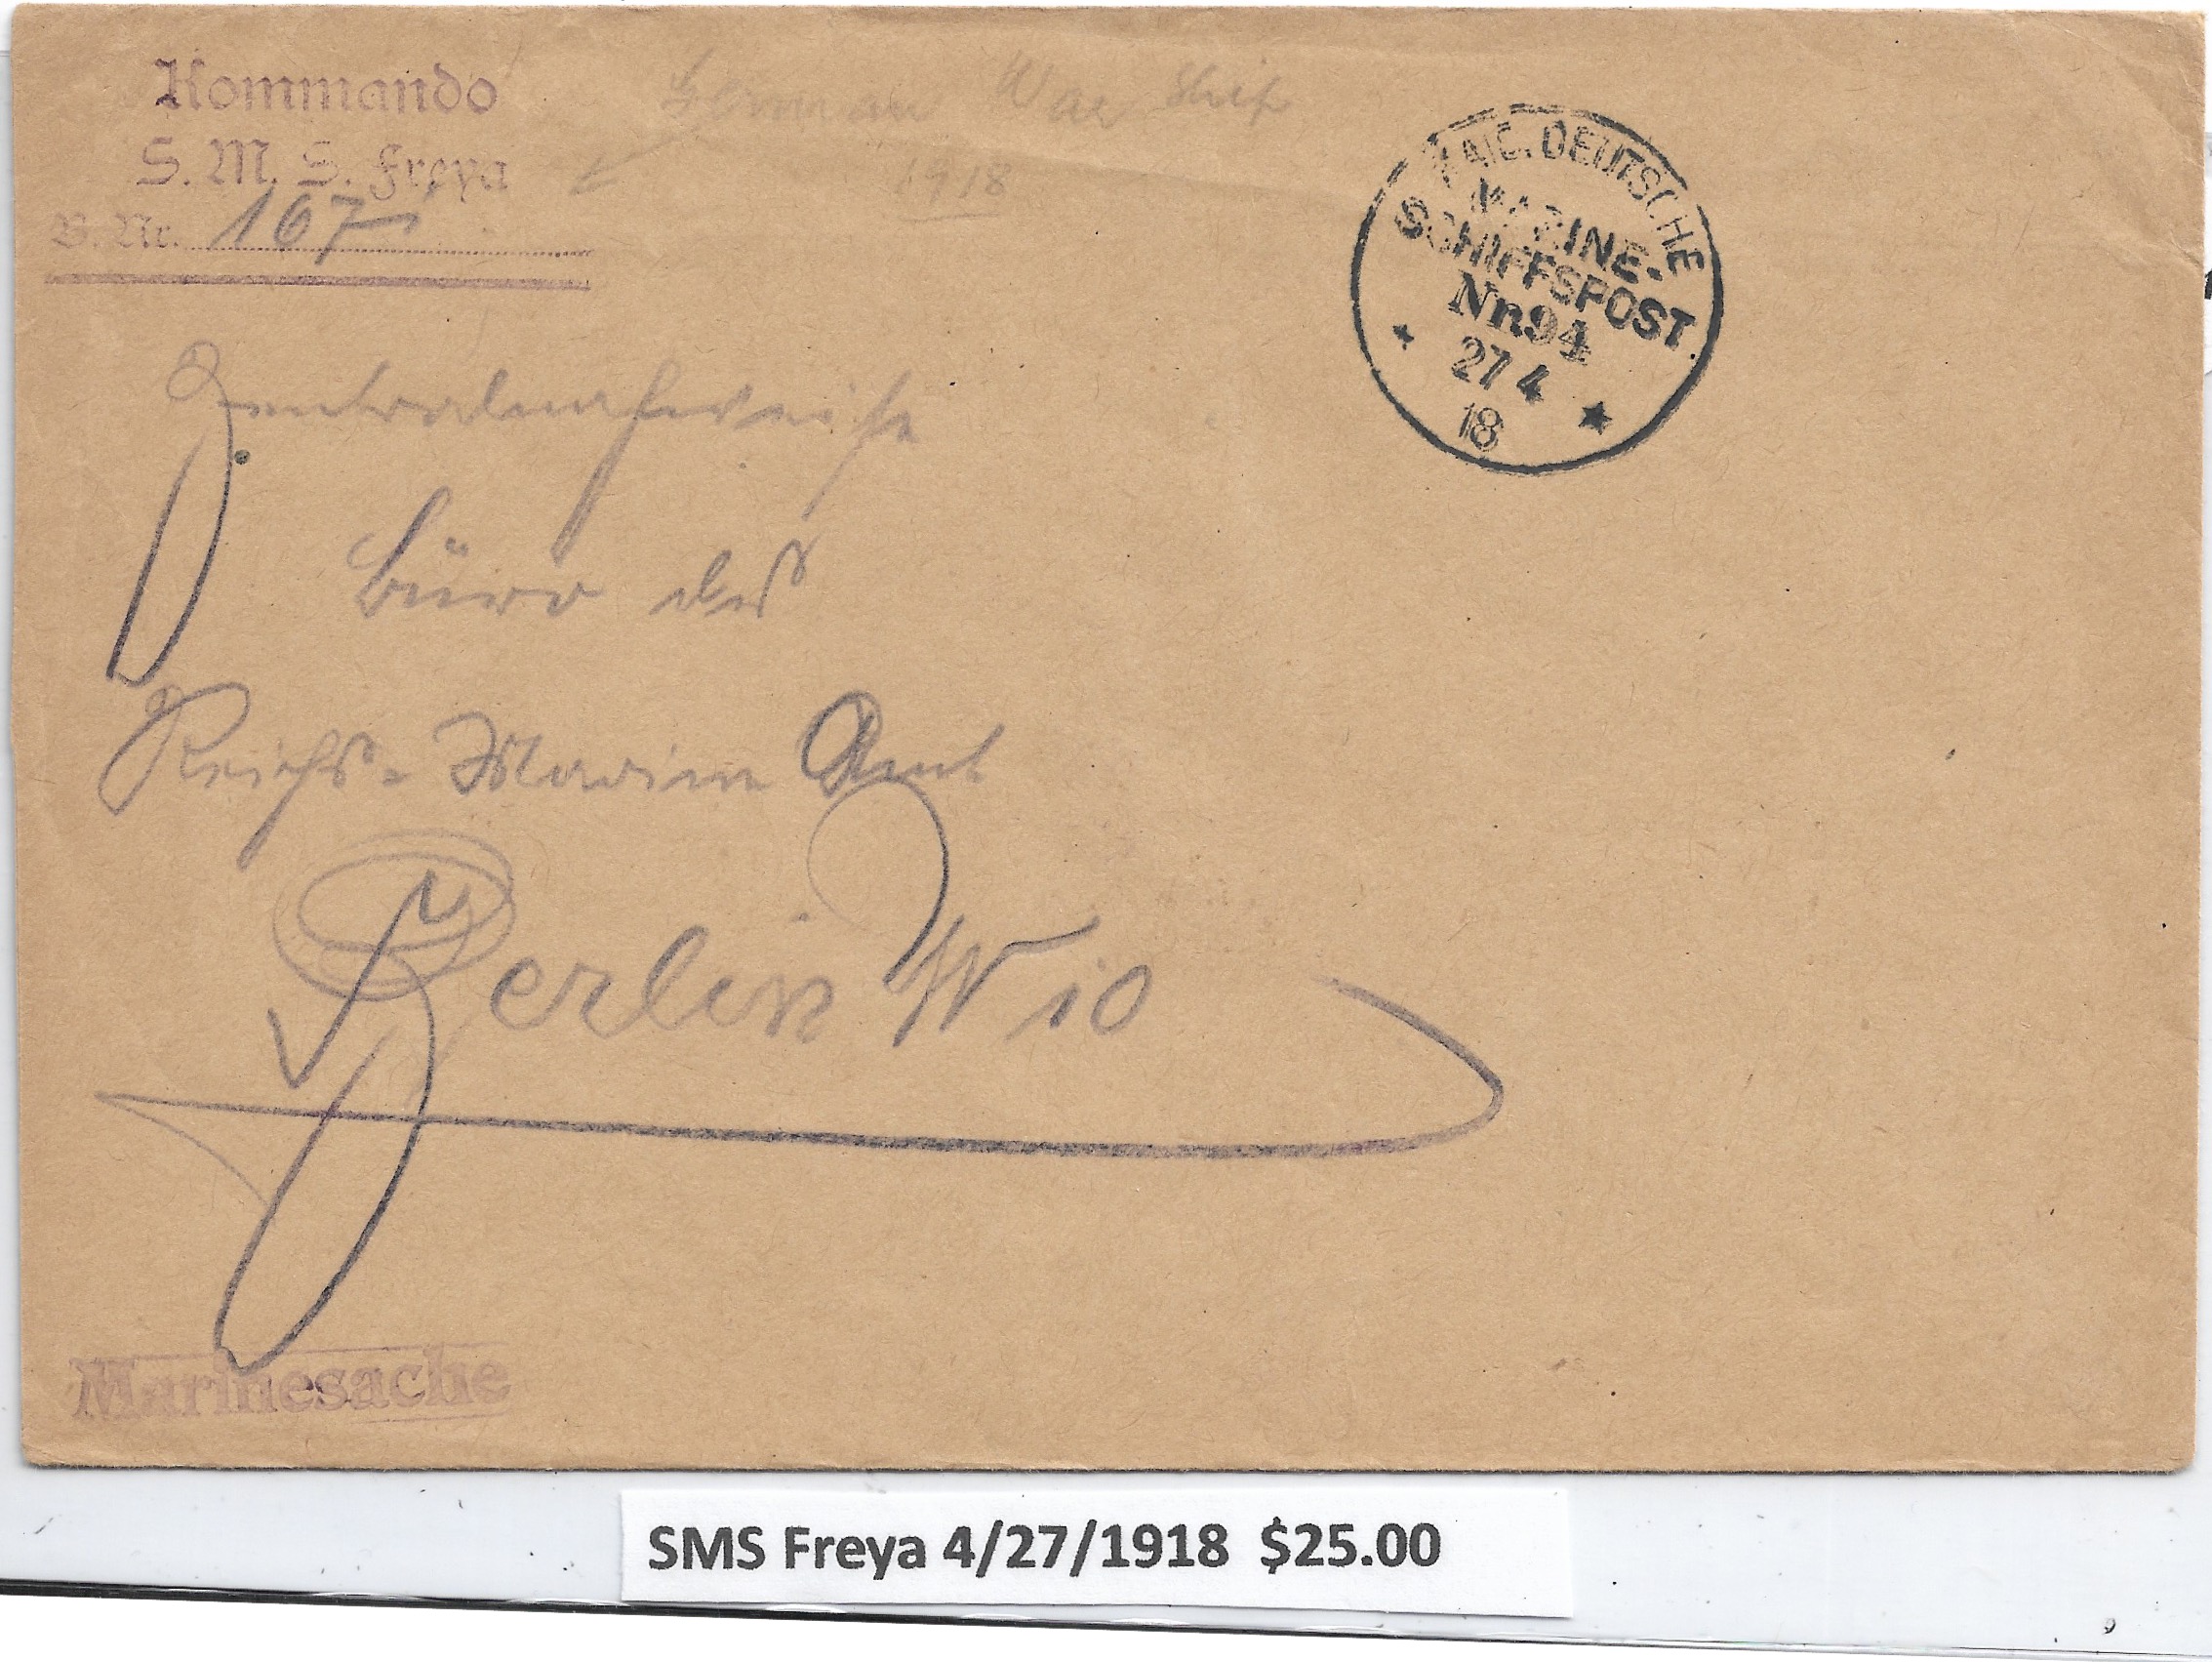 Kommando
S. M. S. Freya
B. Nr. 167
German War Ship
1918
KAIS. DEUTSCHE
MARINE-
SCHIFFSPOST.
Nr. 94
27 4
18
Zentralnachweise
büro des
Reichs-Marine Amt
Berlin W 10
Marinesache
SMS Freya 4/27/1918 $25.00